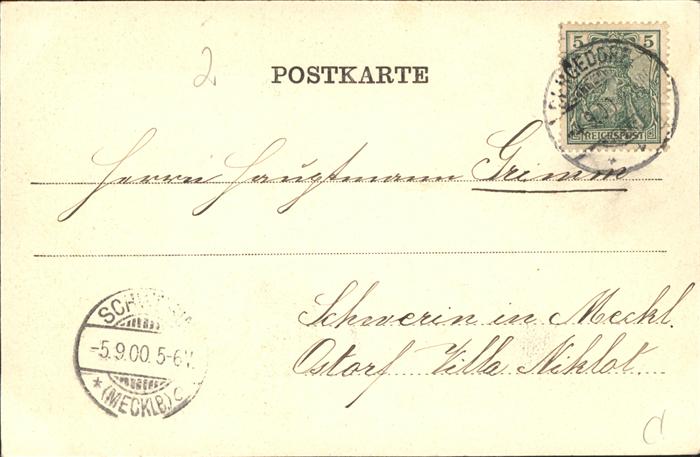 2
5 5
POSTKARTE
REICHSPOST
Herrn Hauptmann Grimm
Schwerin in Meckl.
Ostorf Villa Niklot
-5.9.00.5-6V.
*(MECKLB) C